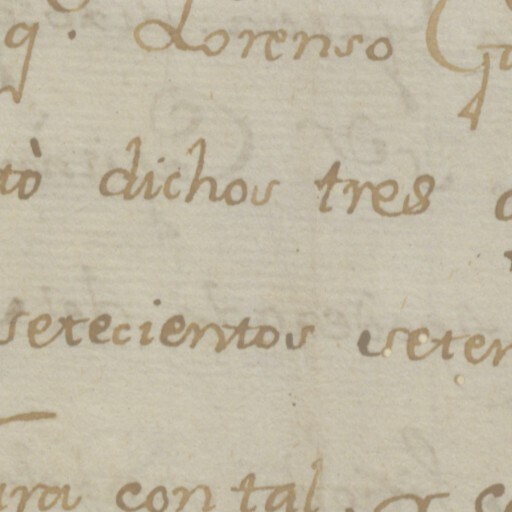 q. Lorenso
tò dichos tres
setecientos seten
ara con tal. y